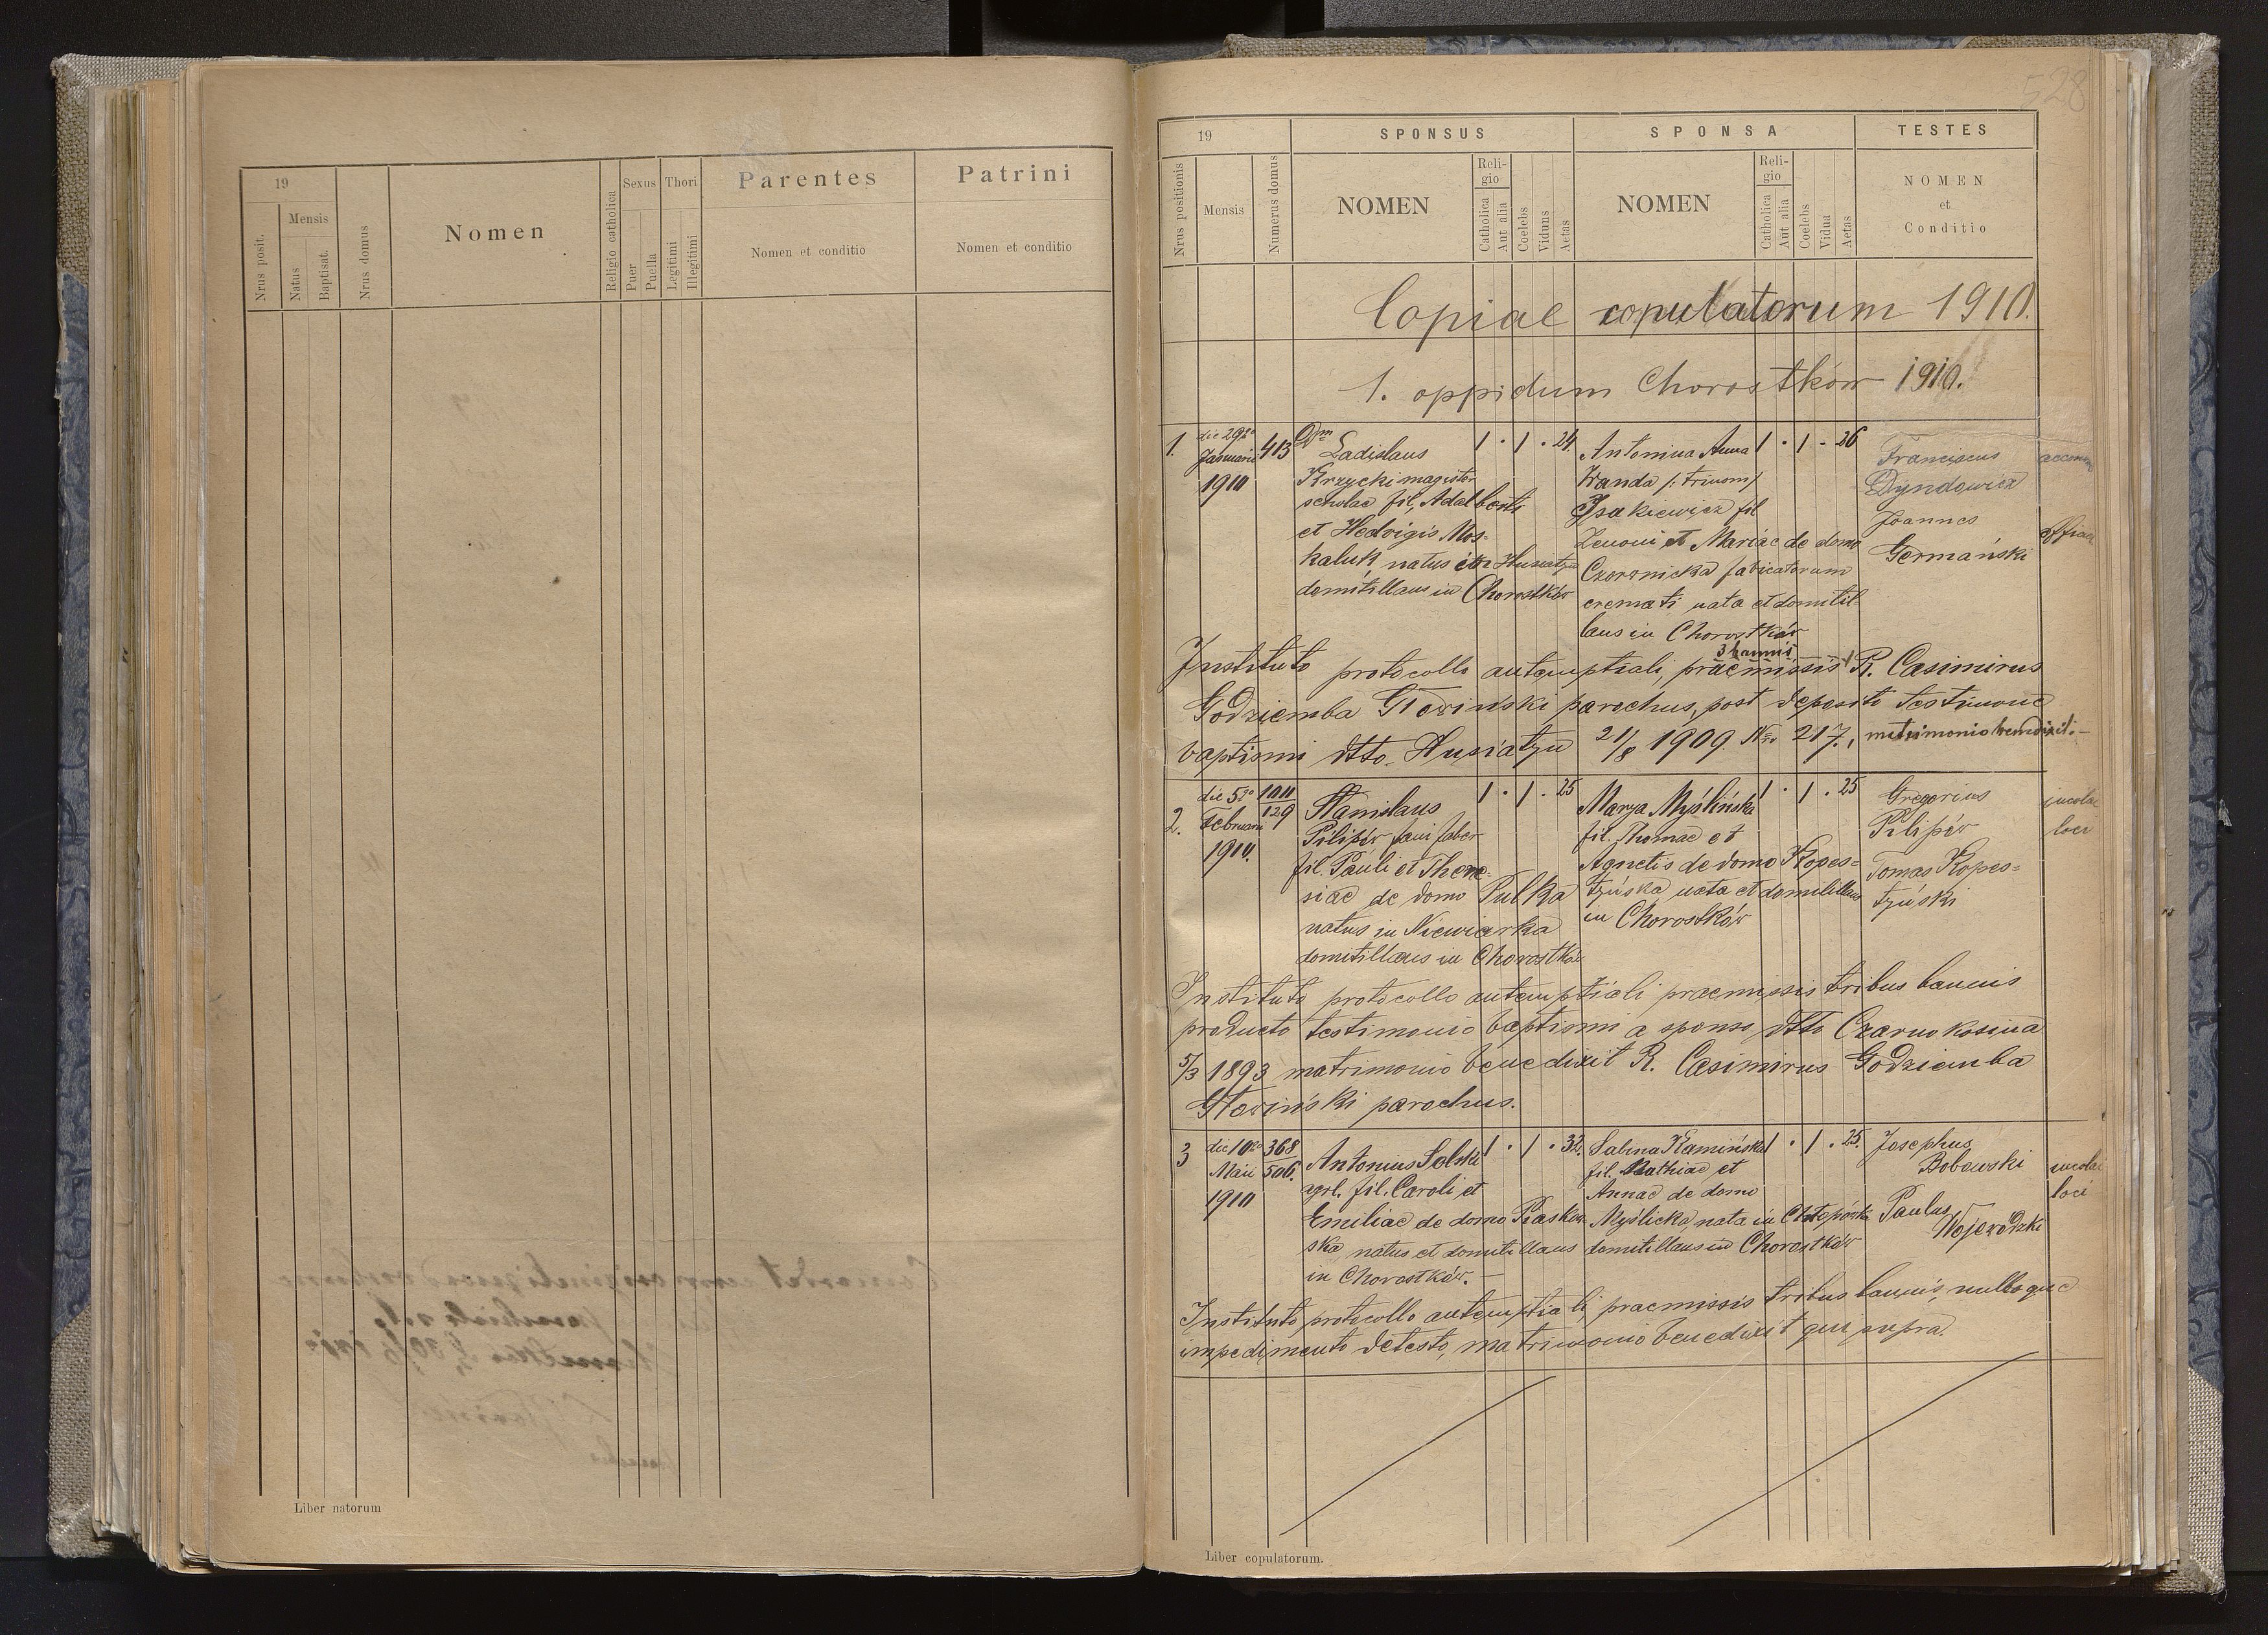 19
Mensis
Nrus posit.
Natus
Baptisat.
Nrus domus
Nomen
Religio catholica
Sexus
Puer
Puella
Thori
Legitimi
Illegitimi
Parentes
Nomen et conditio
Patrini
Nomen et conditio
Liber natorum
528
19
SPONSUS
SPONSA
TESTES
Nrus positionis
Mensis
Numerus domus
NOMEN
Reli-
gio
Catholica
Aut alia
Coelebs
Viduus
Aetas
NOMEN
Reli-
gio
Catholica
Aut alia
Coelebs
Vidua
Aetas
NOMEN
et
Conditio
Copiae copulatorum 1910.
1. oppidum Chorostków 1910.
1.
die 29
Januarii
1910
413
Ladislaus
Krzycki magister
scholae fil. Adalberti
et Hedvigis Mos-
kaluk, natus in Husiatyn
domitillans in Chorostków
1 . 1 . 24.
Antonina Anna
Wanda /: trinom/
Isakiewicz fil
Zenoni et Mariae de domo
Czorownicka fabicatorum
cremati nata et domitil-
lans in Chorostków
1 . 1 - 26
Franciscus
Dyndowicz
Joannes
Germański
Instituto protocollo antenuptiali, praemissis 3 bannis R. Casimirus
Godziemba Głowiński parochus, post deposito testimonio
baptismi dtto. Husiatyn 21/8 1909 Nro 217., matrimonio benedixit. -
2.
die 5
Februarii
1910.
100
129
Stanislaus
Pilipów
fil. Pauli et There-
siae de domo Pulka
natus in Niewiarka
domitillans in Chorostków
1 . 1 . 25
Marya Myślińska
fil. Thomae et
Agnetis de domo Kopes-
tyńska nata et domitillans
in Chorostków
1 . 1 . 25
Gregorius
Pilipów
Tomas Kopes-
tyński
incolae
loci
Instituto protocollo antenuptiali praemissis tribus bannis
producto testimonio baptismi a sponso dtto Czarnokosina
5/3 1893 matrimonio benedixit R. Casimirus Godziemba
Głowiński parochus.
3
die 10
Maii
1910
368
506.
Antonius Solski
agrl. fil. Caroli et
Emiliae de domo Piaskow-
ska natus et domitillans
in Chorostków. -
1 . 1 . 32.
Sabina Kamińska
fil. Mathiae et
Annae de domo
Myślicka, nata in Chłopówka
domitillans in Chorostków
1 . 1 . 25.
Josephus
Bobowski
Paulus
Wojewódzki
incolae
loci
Instituto protocollo antenuptiali, praemissis tribus bannis, nulloque
impedimento detesto, matrimonio benedixit qui supra.
Liber copulatorum.